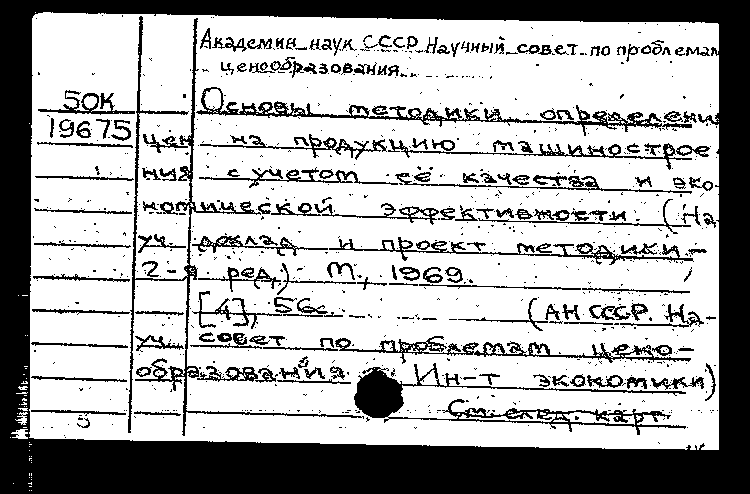 Академия наук СССР Научный совет по проблемам
ценообразования
50К
Основы методики определения
19675
цен на продукцию машинострое-
ния с учетом её качества и эко-
номической эффективности. (На-
уч. доклад и проект методики -
2-я ред.) М., 1969.
[4], 56с. (АН СССР. На-
уч. совет по проблемам цено-
образования Ин-т экономики)
См. след. карт.
5